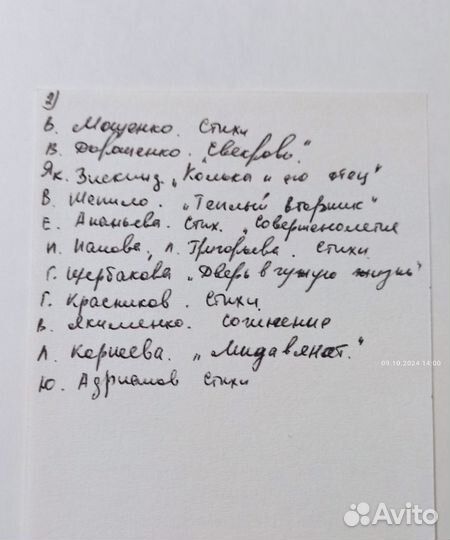 2)
В. Мощенко. Стихи
В. Дорошенко. „Свекровь."
Як. Зискинд „Колька и его отец"
В. Шепило. „Теплый вторник"
Е. Ананьева. Стих. „Совершенолетия
Н. Панова, Л. Григорьева. Стихи
Г. Щербакова „Дверь в чужую жизнь"
Г. Красников. Стихи
В. Якименко. Сочинение
Л. Корнеева.
09.10.2024 14:00
Ю. Адрианов Стихи
Avito